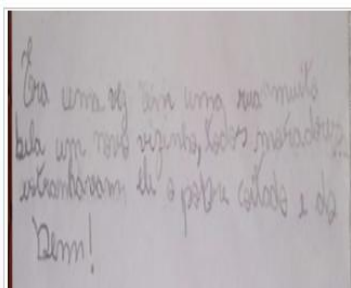 Era uma vez em uma rua muito
bela um novo vizinho, todos moradores
estranhavam ele o pobre coitado e do
Bem!